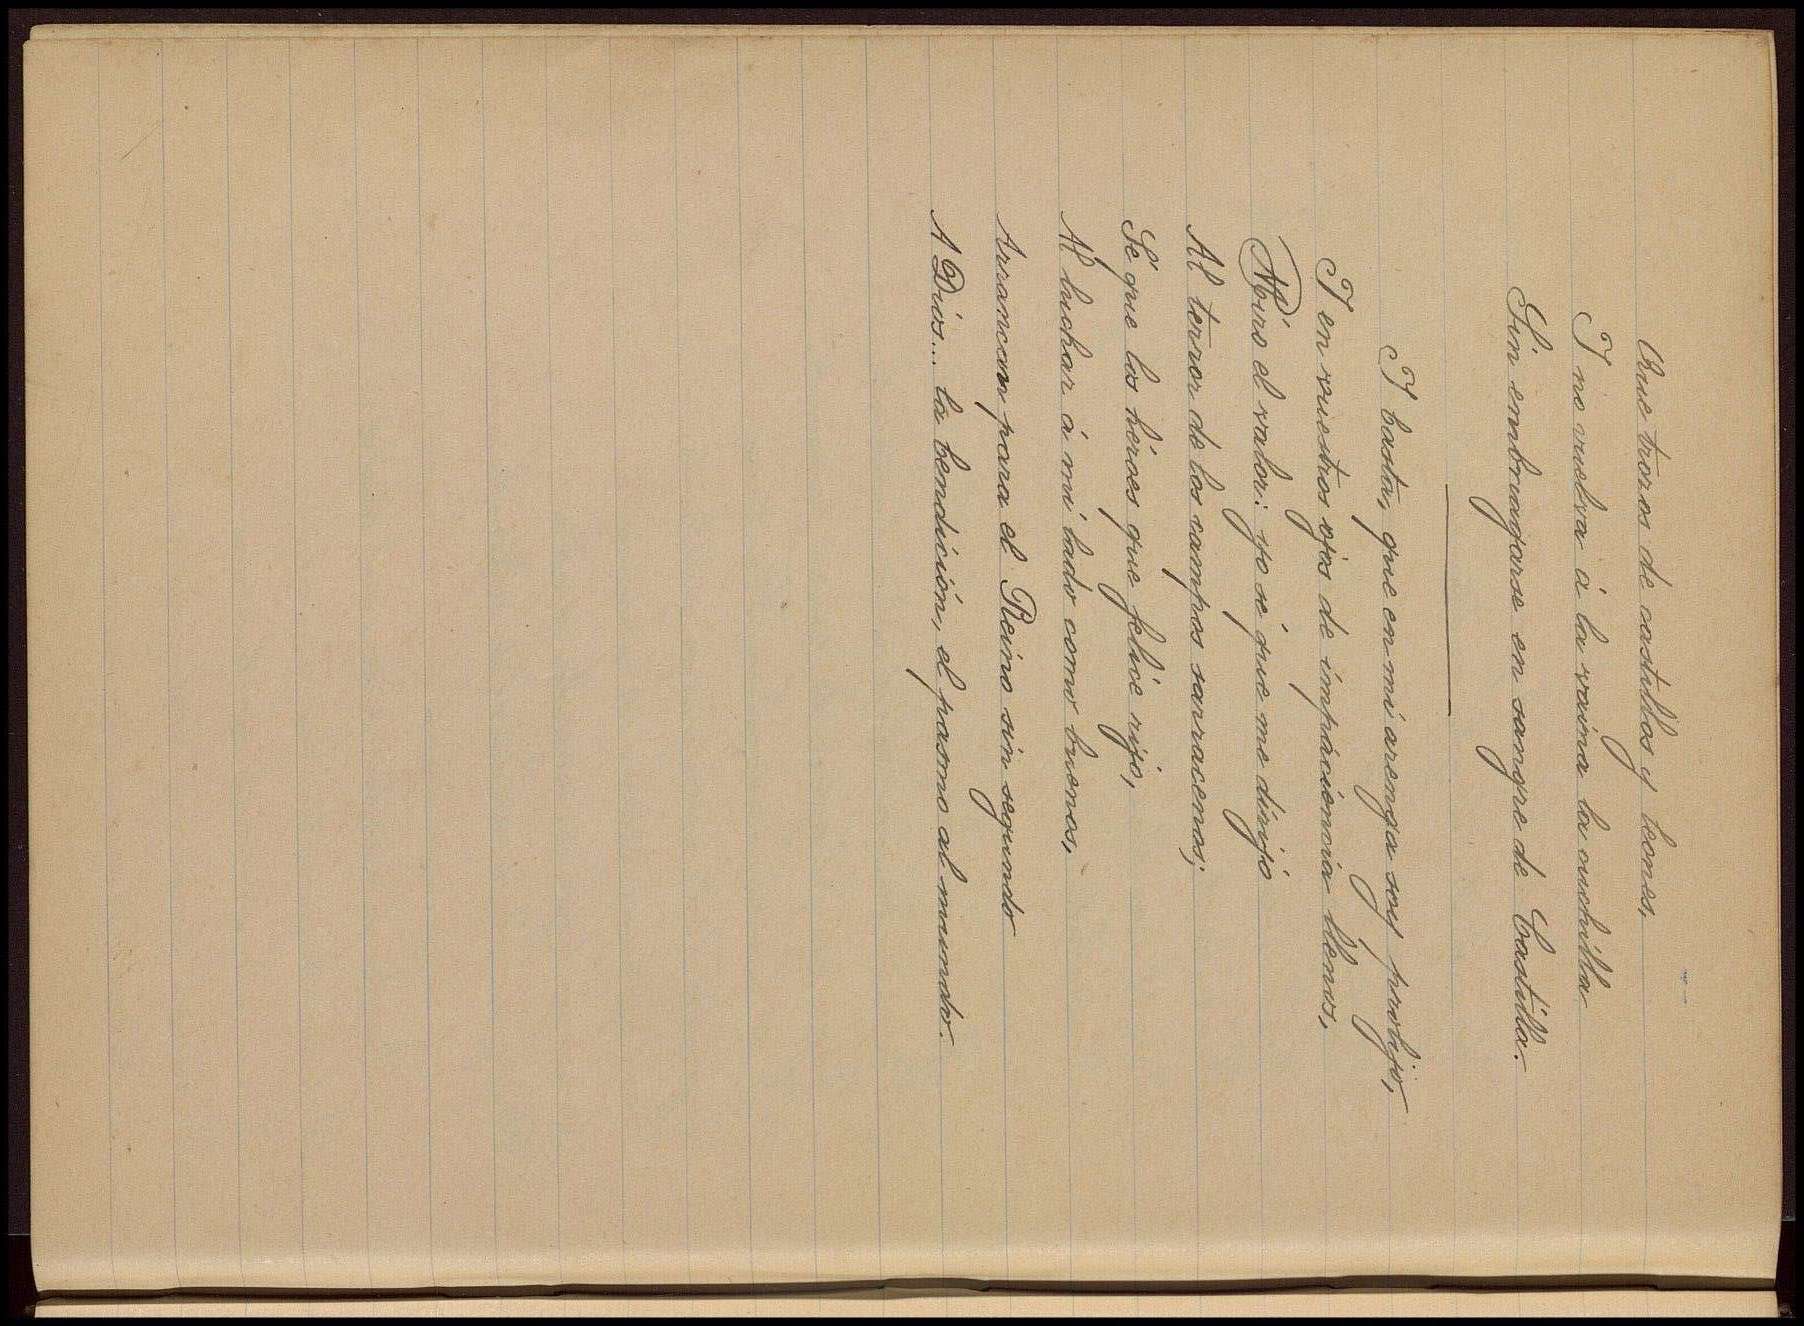 Que trozos de castillos y leones,
Y no vuelva á la vaina la cuchilla
Sin embriagarse en sangre de Castilla.
Y basta, que en mi arenga soy prolijo,
Y en vuestros ojos de impaciencia llenos,
Miro el valor: yo sé que me dirijo
Al terror de los campos sarracenos;
Sé que los héroes que felice rijo,
Al luchar á mi lado como buenos,
Arrancan para el Reino sin segundo
A Dios... la bendición, el pasmo al mundo.